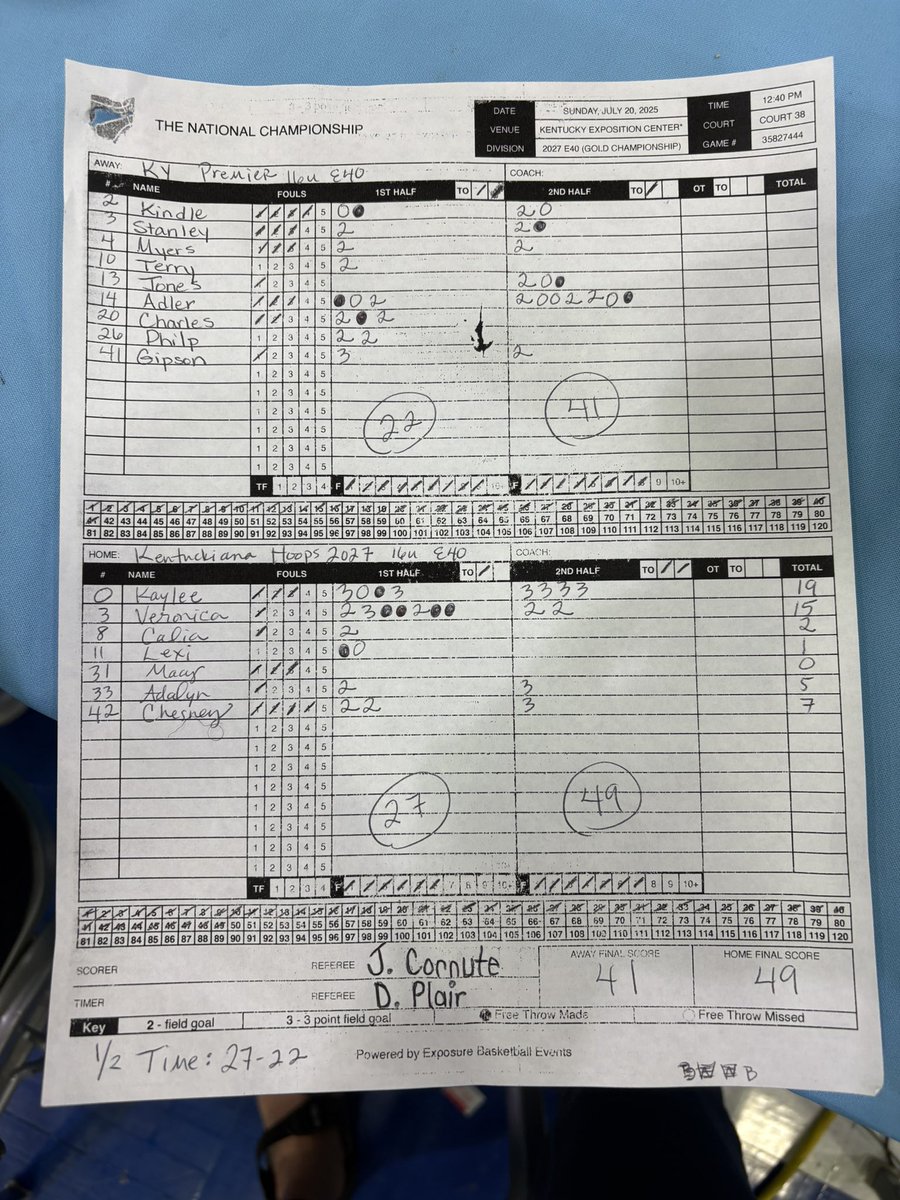 THE NATIONAL CHAMPIONSHIP
DATE SUNDAY, JULY 20, 2025 TIME 12:40 PM
VENUE KENTUCKY EXPOSITION CENTER* COURT COURT 38
DIVISION 2027 E40 (GOLD CHAMPIONSHIP) GAME # 35827444
AWAY: KY Premier 16u E40 COACH:
# NAME FOULS 1ST HALF TO 2ND HALF TO OT TO TOTAL
2 Kindle 5 0● 20
3 Stanley 4 5 2 2●
4 Myers 4 5 2 2
10 Terry 1 2 3 4 5 2
13 Jones 2 3 4 5 20●
14 Adler 4 5 ●02 200220●
20 Charles 3 4 5 2●2
26 Philp 1 2 3 4 5 22
41 Gipson 2 3 4 5 3 2
1 2 3 4 5
1 2 3 4 5
1 2 3 4 5
1 2 3 4 5
1 2 3 4 5
1 2 3 4 5
22 41
TF 1 2 3 4 F 10+ F 9 10+
1 2 3 4 5 6 7 8 9 10 11 12 13 14 15 16 17 18 19 20 21 22 23 24 25 26 27 28 29 30 31 32 33 34 35 36 37 38 39 40
41 42 43 44 45 46 47 48 49 50 51 52 53 54 55 56 57 58 59 60 61 62 63 64 65 66 67 68 69 70 71 72 73 74 75 76 77 78 79 80
81 82 83 84 85 86 87 88 89 90 91 92 93 94 95 96 97 98 99 100 101 102 103 104 105 106 107 108 109 110 111 112 113 114 115 116 117 118 119 120
HOME: Kentuckiana Hoops 2027 16u E40 COACH:
# NAME FOULS 1ST HALF TO 2ND HALF TO OT TO TOTAL
0 Kaylee 4 5 30●3 3333 19
3 Veronica 2 3 4 5 23●●2●● 22 15
8 Calia 2 3 4 5 2 2
11 Lexi 1 2 3 4 5 ●0 1
31 Maay 4 5 0
33 Adalyn 2 3 4 5 2 3 5
42 Chesney 5 22 3 7
1 2 3 4 5
1 2 3 4 5
1 2 3 4 5
1 2 3 4 5
1 2 3 4 5
1 2 3 4 5
1 2 3 4 5
1 2 3 4 5
27 49
TF 1 2 3 4 F 7 8 9 10+ F 8 9 10+
1 2 3 4 5 6 7 8 9 10 11 12 13 14 15 16 17 18 19 20 21 22 23 24 25 26 27 28 29 30 31 32 33 34 35 36 37 38 39 40
41 42 43 44 45 46 47 48 49 50 51 52 53 54 55 56 57 58 59 60 61 62 63 64 65 66 67 68 69 70 71 72 73 74 75 76 77 78 79 80
81 82 83 84 85 86 87 88 89 90 91 92 93 94 95 96 97 98 99 100 101 102 103 104 105 106 107 108 109 110 111 112 113 114 115 116 117 118 119 120
SCORER REFEREE J. Cornute AWAY FINAL SCORE HOME FINAL SCORE
TIMER REFEREE D. Plair 41 49
Key 2 - field goal 3 - 3 point field goal Free Throw Made Free Throw Missed
1/2 Time: 27-22 Powered by Exposure Basketball Events B